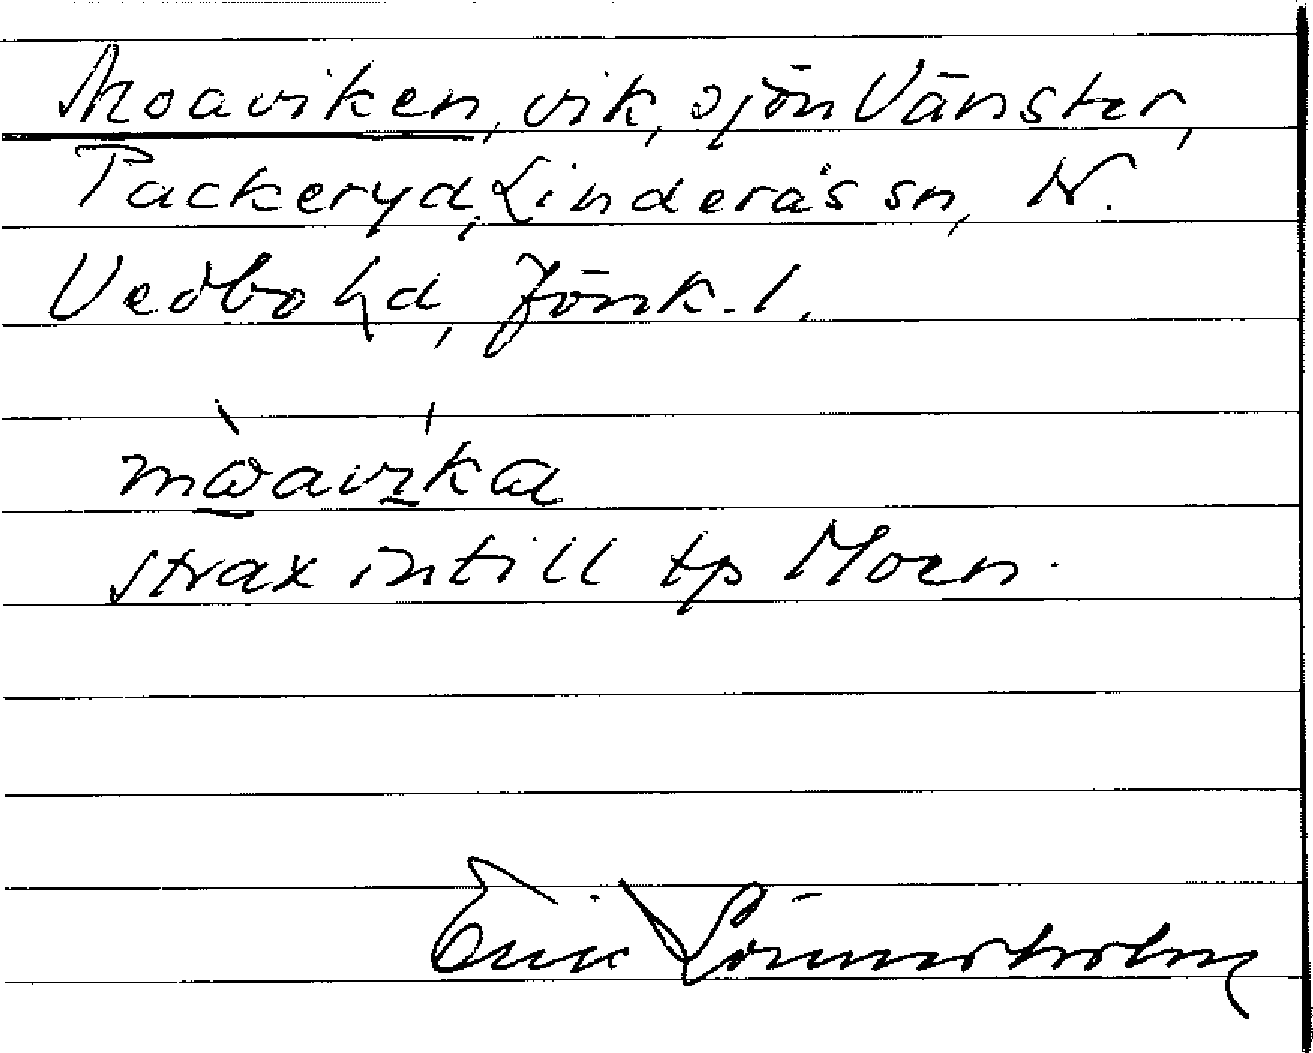 Moaviken, vik, sjön Vänster,
Packeryd, Linderås sn, N.
Vedbo hd, Jönk. l.
strax intill tp Moen.
Erik Lönnerholm